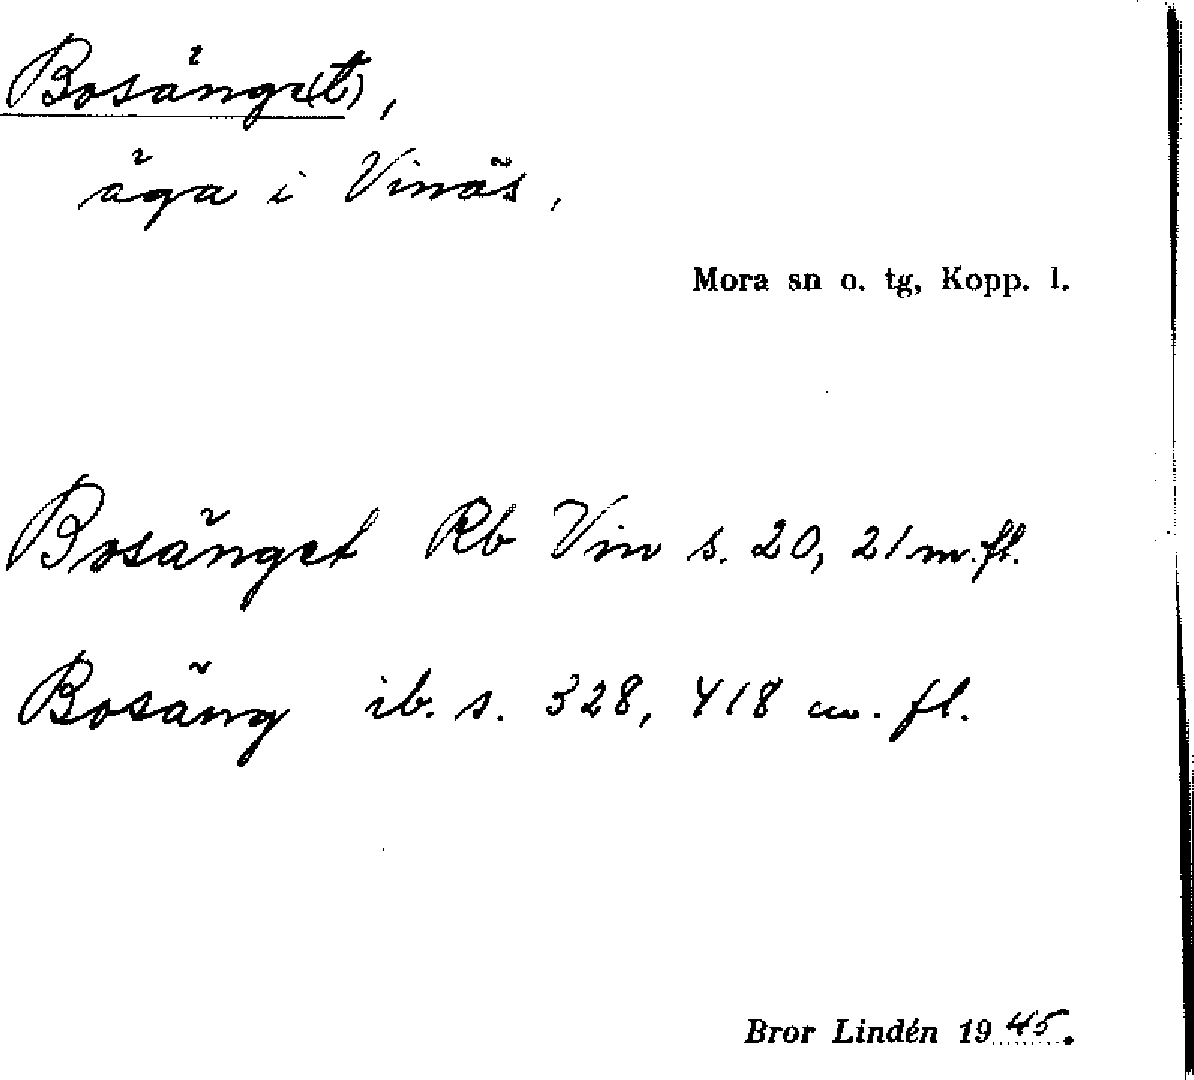 Bosänge(t),
äga i Vinäs,
Mora sn o. tg, Kopp. l.
Bosänget Rb Vin s. 20, 21 m. fl.
Bosäng ib. s. 328, 418 m. fl.
Bror Lindén 1945.